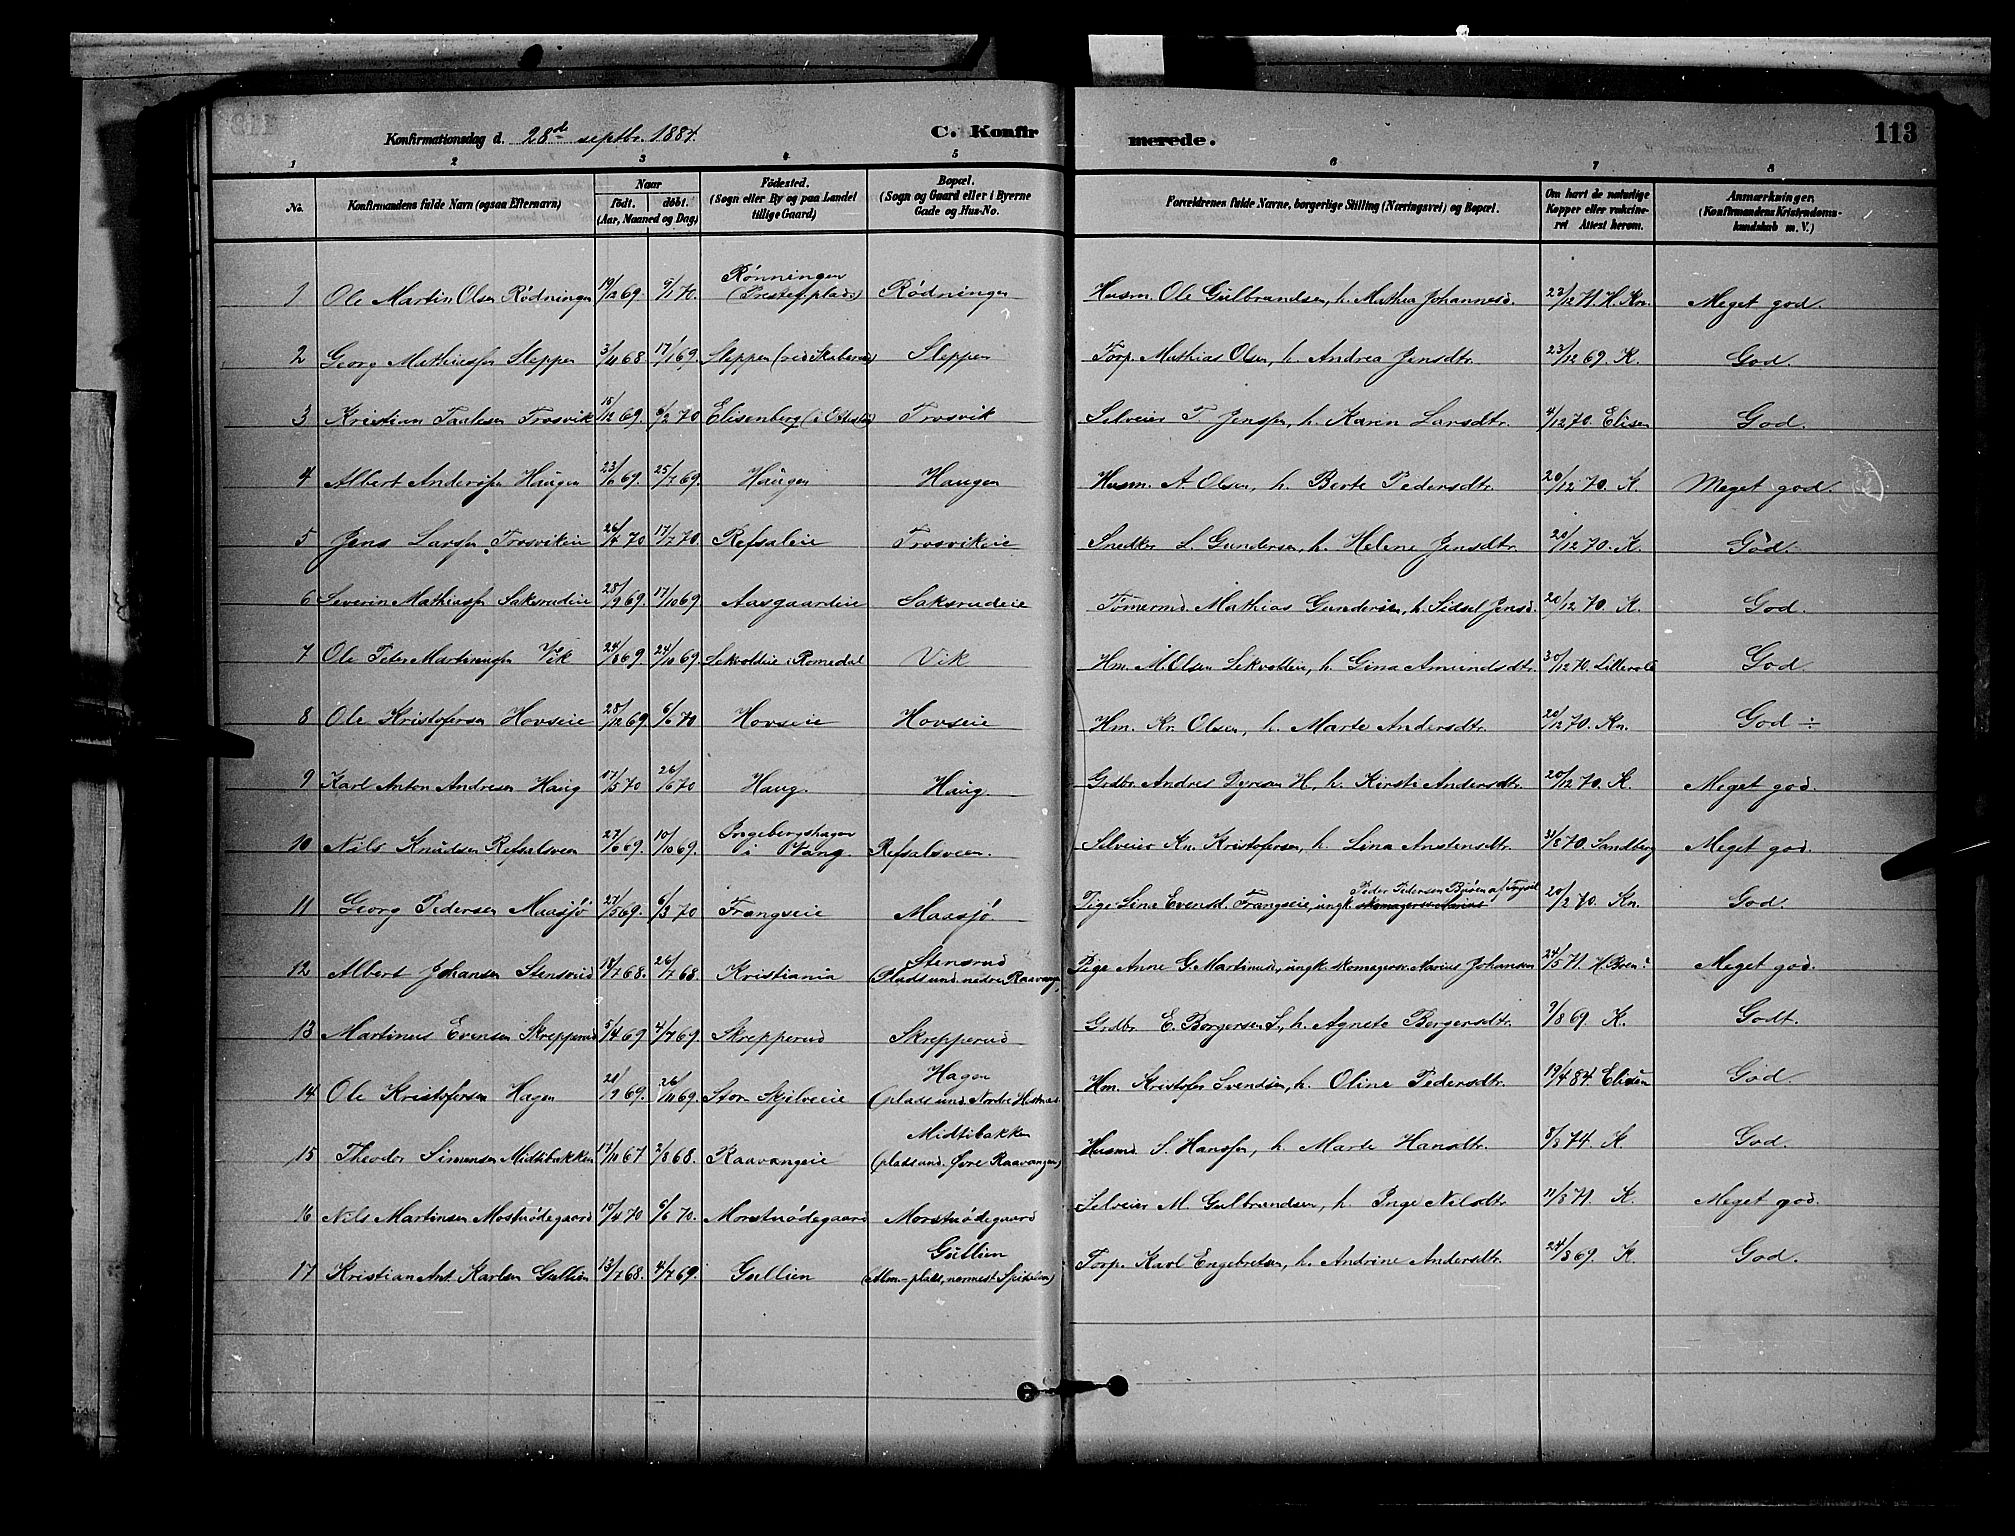 Konfirmationsdag d. 28de septbr. 1884. C. Konfirmerede. 113
1 2 3 4 5 6 7 8
No. Konfirmandens fulde Navn (ogsaa Efternavn) Naar født. døbt. (Aar, Maaned og Dag) Fødested. (Sogn eller By og paa Landet tillige Gaard) Bopæl. (Sogn og Gaard eller i Byerne Gade og Hus-No. Forældrenes fulde Navne, borgerlige Stilling (Næringsvei) og Bopæl. Om havt de naturlige Kopper eller vakcineret Attest herom. Anmærkninger. (Konfirmandens Kristendomskundskab m. V.)
1 Ole Martin Olsen Rödningen 19/12 69 9/1 70 Rönningen (Prestef. plads) Rödningen Husm. Ole Gulbrandsen, h. Mathea Johannesd. 23/12 71. H. Kn. Meget god.
2 Georg Mathiassen Sleppen 3/11 68 17/1 69. Sleppen Sleppen Torp. Mathias Olsen, h. Andrea Jensdtr. 23/12 69. K. God.
3 Kristian Paulsen Trosvik 15/12 69. 6/2 70 Elisenberg Trosvik Selveier P. Jenssen, h. Karen Larsdtr. 4/12 70. Elisen God.
4 Albert Anderssen Haugen 23/6 69. 25/7 69. Haugen Haugen Husm. A. Olsen, h. Berte Pedersdtr. 20/12 70. K. Meget god.
5 Jens Larssen Trosvikeie 26/4 70 17/7 70. Refsaleie Trosvikeie Snedker L. Gundersen, h. Helene Jensdtr. 20/12 70. K. God.
6 Severin Mathiassen Saksrudeie 28/9 69. 17/10 69 Aasgaardeie Saksrudeie Tömermd. Mathias Gundersen, h. Sidsel Jensd. 20/12 70. K. God.
7 Ole Peter Martinussen Vik 24/8 69 24/10 69. Sekvoldeie i Romedal Vik Hm. M. Olsen Sekvolden, h. Gina Amundsdtr. 30/12 70. God
8 Ole Kristofersen Hovseie 28/12 69. 6/6 70 Hovseie Hovseie Hm. Kr. Olsen, h. Marte Andersdtr. 20/12 70. Kn. God ÷
9 Karl Anton Andresen Haug 17/5 70 26/6 70 Haug. Haug. Grdbr. Andres Pyresen H., h. Kirsti Andersdtr. 20/12 70. K. Meget god.
10 Nils Knudsen Refsalsveen 27/6 69. 10/10 69. Ingebergshagen i Vang. Refsalsveen. Selveier Kn. Kristofersen, h. Lina Anstensdtr. 70. Sandberg Meget god.
11 Georg Pedersen Maasjö 27/5 69. 6/3 70 Frangseie Maasjö Pige Lina Evensd. Frangseie, ungk. Peder Pedersen af Trysil 20/2 70. Kn. God.
12 Albert Johansen Stensrud 14/7 68. 26/7 68. Kristiania Stensrud (Plads und. nedre Raavangen Pige Anne G. Martinusd., ungk. skomagersv. Marius Johansen 24/5 71. Meget god.
13 Martinus Evensen Skrepperud 5/4 69 4/7 69. Skrepperud Skrepperud Grdbr. E. Borgersen S., h. Agnete Borgersdtr. 9/8 69. K. Godt.
14 Ole Kristofersen Hagen 21/9 69. 26/11 69. Stor Skjelveie Hagen (plads und. Nordre Hersaa) Hm. Kristofer Svendsen, h. Oline Pedersdtr. 19/4 84. Elisen God.
15 Theodor Simensen Midtibakken 17/11 67 2/8 68. Raavangeie Midtibakken (plads und. Övre Raavangen) Husmd. S. Hanssen, h. Marte Hansdtr. 8/8 74. K. God.
16 Nils Martinsen Mostuödegaard 10/4 70 6/6 70. Morstuödegaard Morstuödegaard Selveier M. Gulbrandsen, h. Inge Nilsdtr. 11/8 71. K. Meget god.
17 Kristian Ant. Karlsen Gullien 13/7 68. 4/7 69. Gullien Gullien (Alm-plads, nermest ) Torp. Karl Engebretsen, h. Andrine Andersdtr. 24/8 69. K. God.